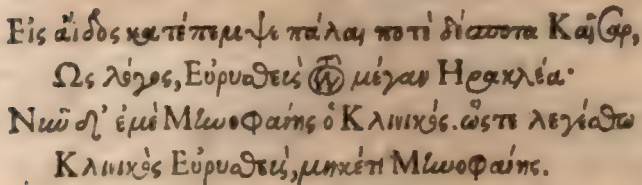 Εἰς ἄϊδος κατέπεμψε πάλαι ποτὲ δέσποτα Καῖσαρ,
Ως λόγος, Εὐρυσθεὺς τὸν μέγαν Ηρακλέα·
Νῦν δ' ἐμὲ Μηνοφάνης ὁ Κλινικός. ὥστε λεγέσθω
Κλινικὸς Εὐρυσθεὺς, μηκέτι Μηνοφάνης.